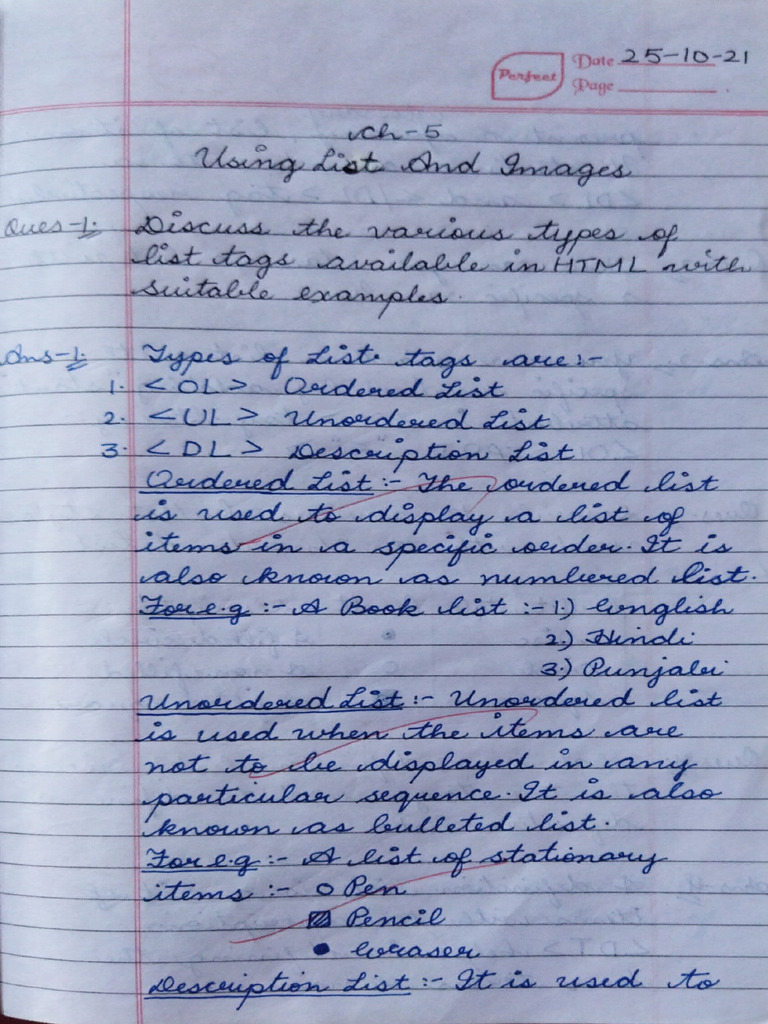 Perfect Date 25-10-21
Page
Ch-5
Using List And Images
Ques-1. Discuss the various types of
list tags available in HTML with
suitable examples.
Ans-1. Types of List tags are:-
1. <OL> Ordered List
2. <UL> Unordered List
3. <DL> Description List
Ordered List :- The ordered list
is used to display a list of
items in a specific order. It is
also known as numbered list.
For e.g :- A Book list :- 1.) English
2.) Hindi
3.) Punjabi
Unordered List :- Unordered list
is used when the items are
not to be displayed in any
particular sequence. It is also
known as bulleted list.
For e.g :- A list of stationary
items :- ○ Pen
▨ Pencil
● Eraser
Description List :- It is used to